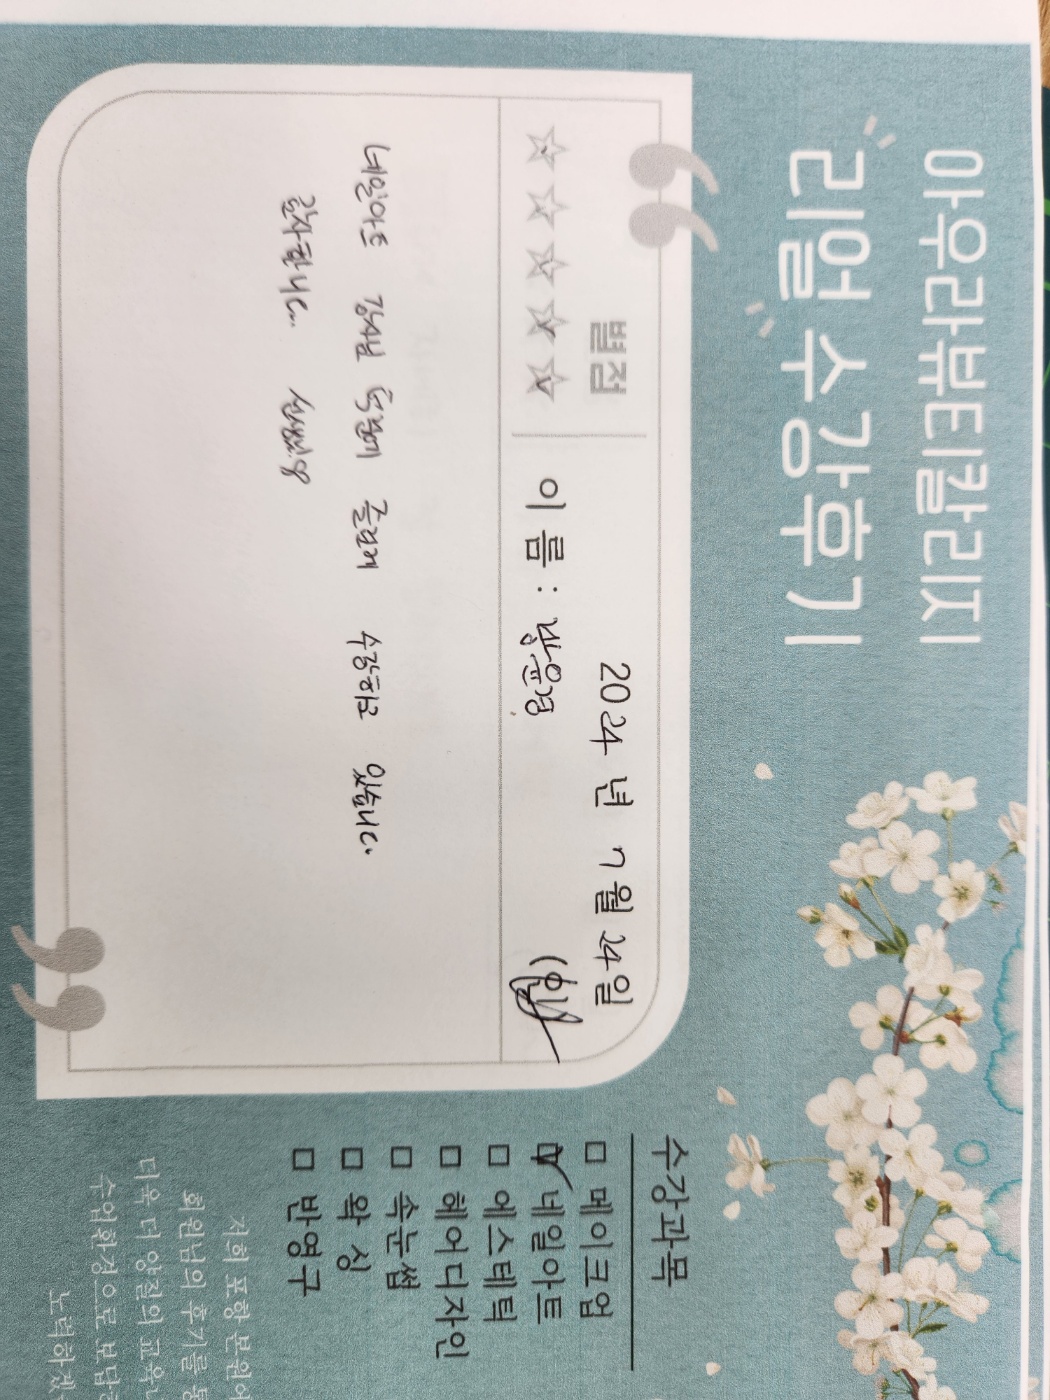 아우라뷰티칼리지
리얼 수강후기
별점
☆☆☆☆☆
2024 년 7월 24일
이 름 : 방윤경
네일아트 강사님 덕분에 즐겁게 수강하고 있습니다.
감사합니다... 선생님
수강과목
□ 메이크업
☑ 네일아트
□ 에스테틱
□ 헤어디자인
□ 속눈썹
□ 왁싱
□ 반영구
저희 포항 본원에
회원님의 후기를 통
더욱 더 양질의 교육
수업환경으로 보답
노력하겠